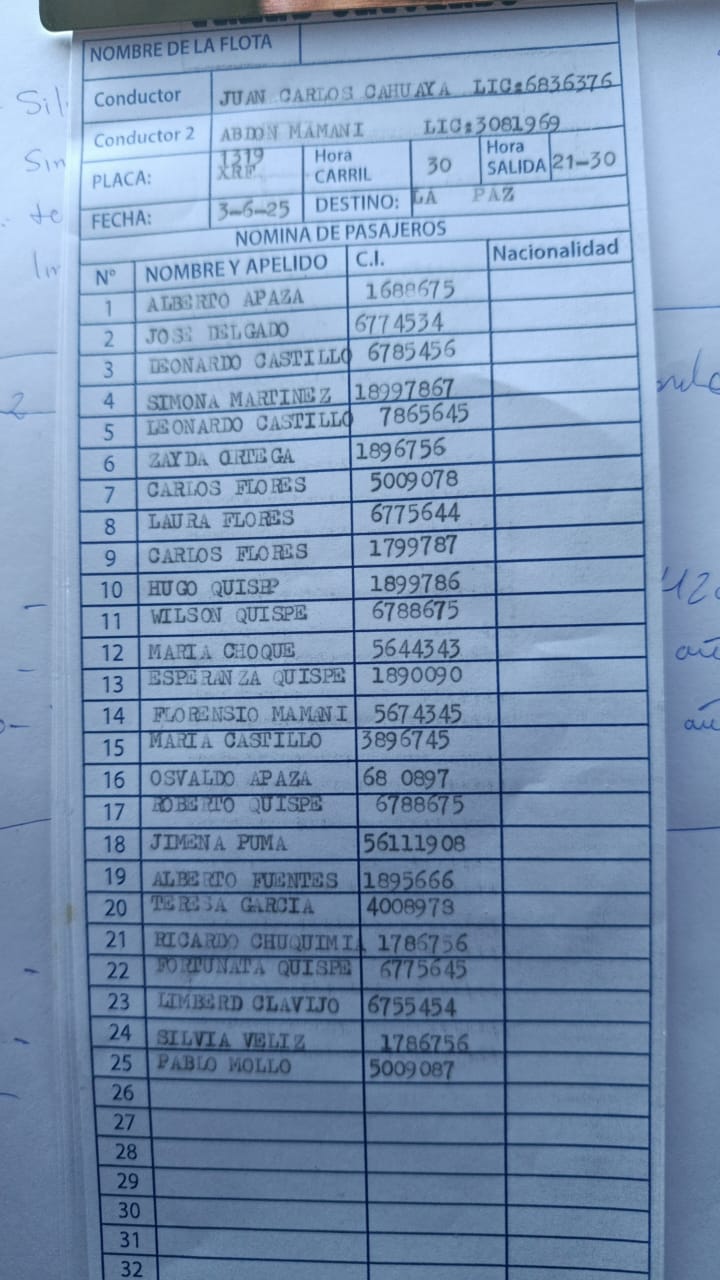 NOMBRE DE LA FLOTA
Conductor JUAN CARLOS CAHUAYA LIC:6836376
Conductor 2 ABDON MAMANI LIC:3081969
PLACA: 1319 XRF Hora CARRIL 30 Hora SALIDA 21-30
FECHA: 3-6-25 DESTINO: LA PAZ
NOMINA DE PASAJEROS
N° NOMBRE Y APELIDO C.I. Nacionalidad
1 ALBERTO APAZA 1688675
2 JOSE DELGADO 6774534
3 LEONARDO CASTILLO 6785456
4 SIMONA MARTINEZ 18997867
5 LEONARDO CASTILLO 7865645
6 ZAYDA ORTEGA 1896756
7 CARLOS FLORES 5009078
8 LAURA FLORES 6775644
9 CARLOS FLORES 1799787
10 HUGO QUISPP 1899786
11 WILSON QUISPE 6788675
12 MARIA CHOQUE 5644343
13 ESPERANZA QUISPE 1890090
14 FLORENSIO MAMANI 5674345
15 MARIA CASTILLO 3896745
16 OSVALDO APAZA 68 0897
17 ROBERTO QUISPE 6788675
18 JIMENA PUMA 56111908
19 ALBERTO FUENTES 1895666
20 TERESA GARCIA 4008978
21 RICARDO CHUQUIMIA 1786756
22 FORTUNATA QUISPE 6775645
23 LIMBERD CLAVIJO 6755454
24 SILVIA VELIZ 1786756
25 PABLO MOLLO 5009087
26
27
28
29
30
31
32